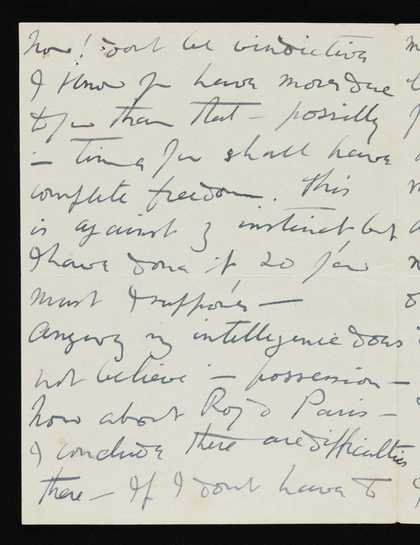 now! dont be vindictive
I know you have more due
to you than that – possibly
in time you shall have
complete freedom. This
is against my instinct but
I have done it so you
must I suppose –
Anyway my intelligence does
not believe in possession –
Now about Roy & Paris –
I conclude there are difficulties
there – If I dont have to